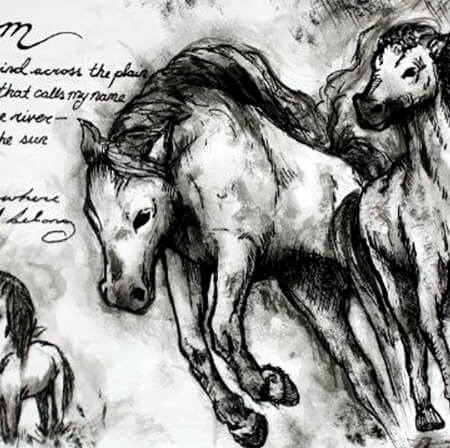 m
ind across the plain
that calls my name
e river—
he sun
where
I belong